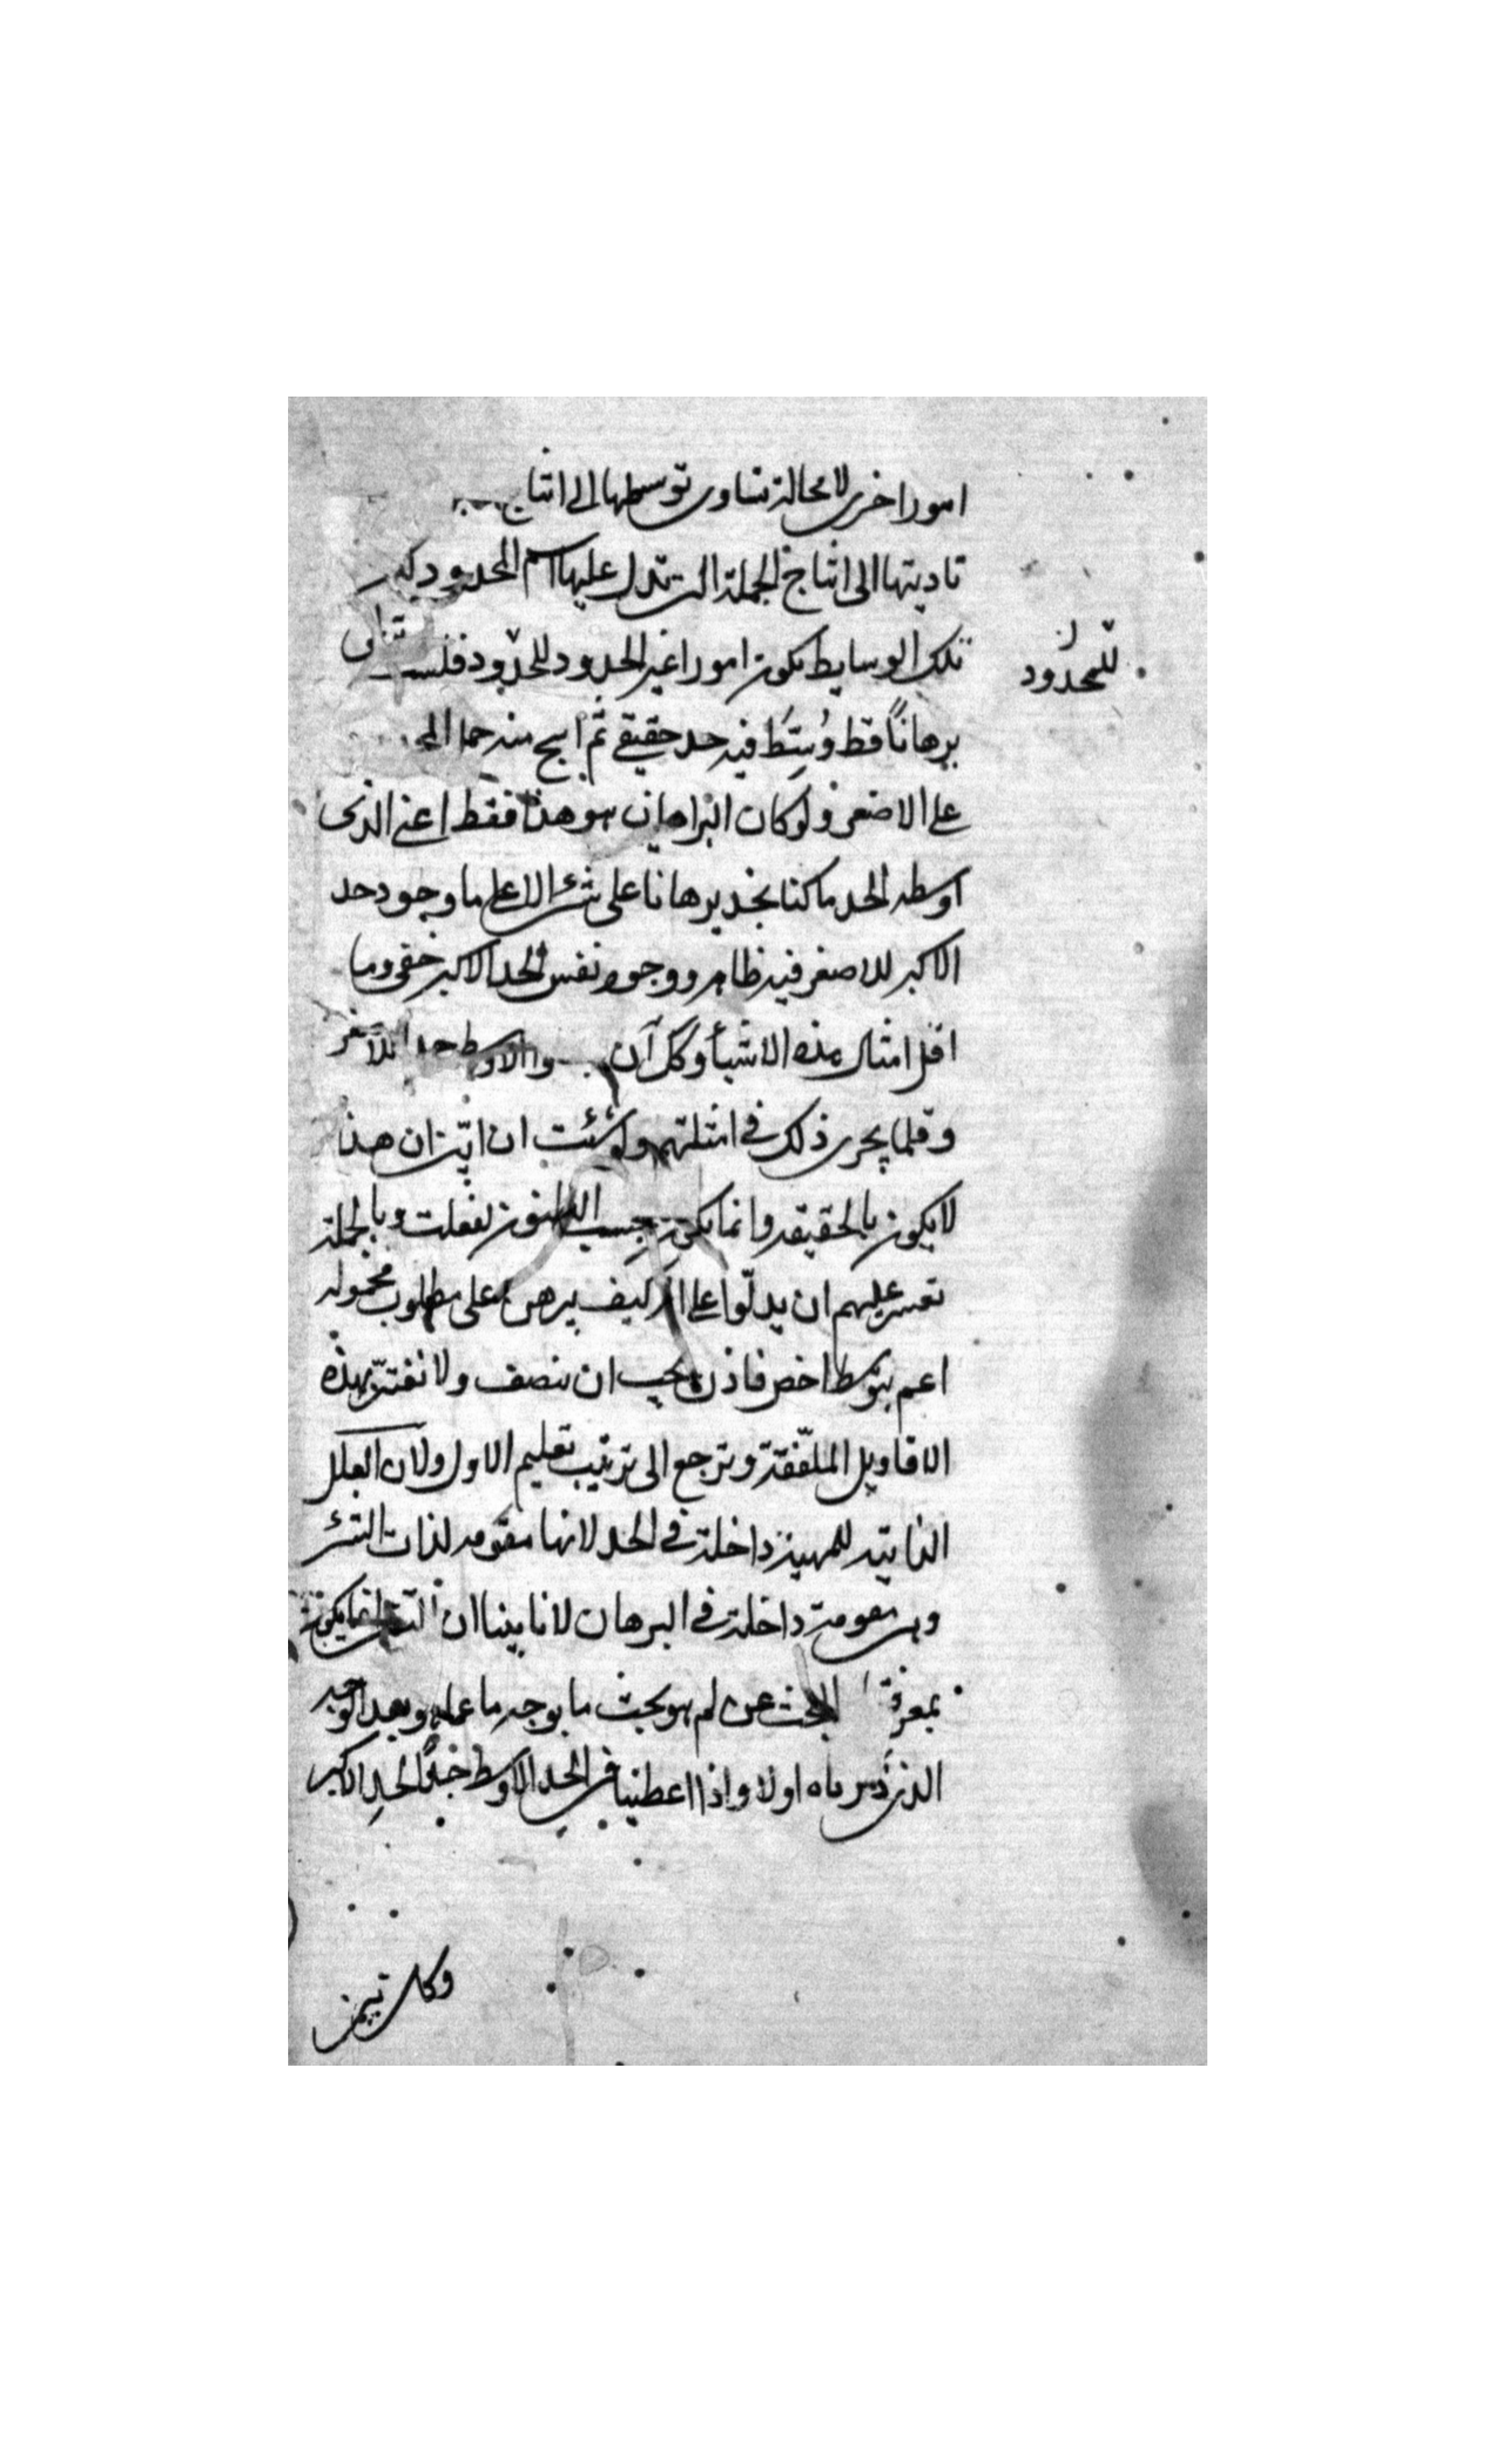 امورا خرى لا محالة تتساوى توسطها الى انتاج
تاديتها الى انتاج الجملة التى تدل عليها اسم المحدود لكن
تلك الوسايط يكون امورا غير الحدود للحدود فلست
للمحدود
برهانًا قط وُسِّط فيه حد حقيقى ثم انتج منه حمل
على الاصغر ولو كان البراهان هو هذا فقط اعنى الذى
اوسطه الحد ما كنا نجد برهانا على شئ الا على ما وجود حد
الاكبر للاصغر فيه ظاهر ووجود نفس الحد الاكبر خفى وما
اقل امثال هذه الاشياء وكل آن والاوسط حد للاصغر
وقلما يجرى ذلك فى امثلتهم ولو شئت ان ابيّن ان هذا
لا يكون بالحقيقه وانما يكون بحسب الظنون لفعلت وبالجملة
تعسر عليهم ان يدلّوا على انه كيف يبرهن على مطلوب محموله
اعم بتوسط اخص فاذن يجب ان ننصف ولا نغترّ بهذه
الاقاويل الملفّقة ونرجع الى ترتيب تعليم الاول ولان العلل
الذاتيه للمهية داخلة فى الحد لانها مقومه لذات الشئ
وهى مقومة داخلة فى البرهان لانا بينا ان انما يكون
بمعرفة البحث عن لم هو بحث ما بوجه ما عما هو بعد الوجه
الذى ذكرناه اولا واذا اعطينا فى الحد الاوسط حدًّا لحد الاكبر